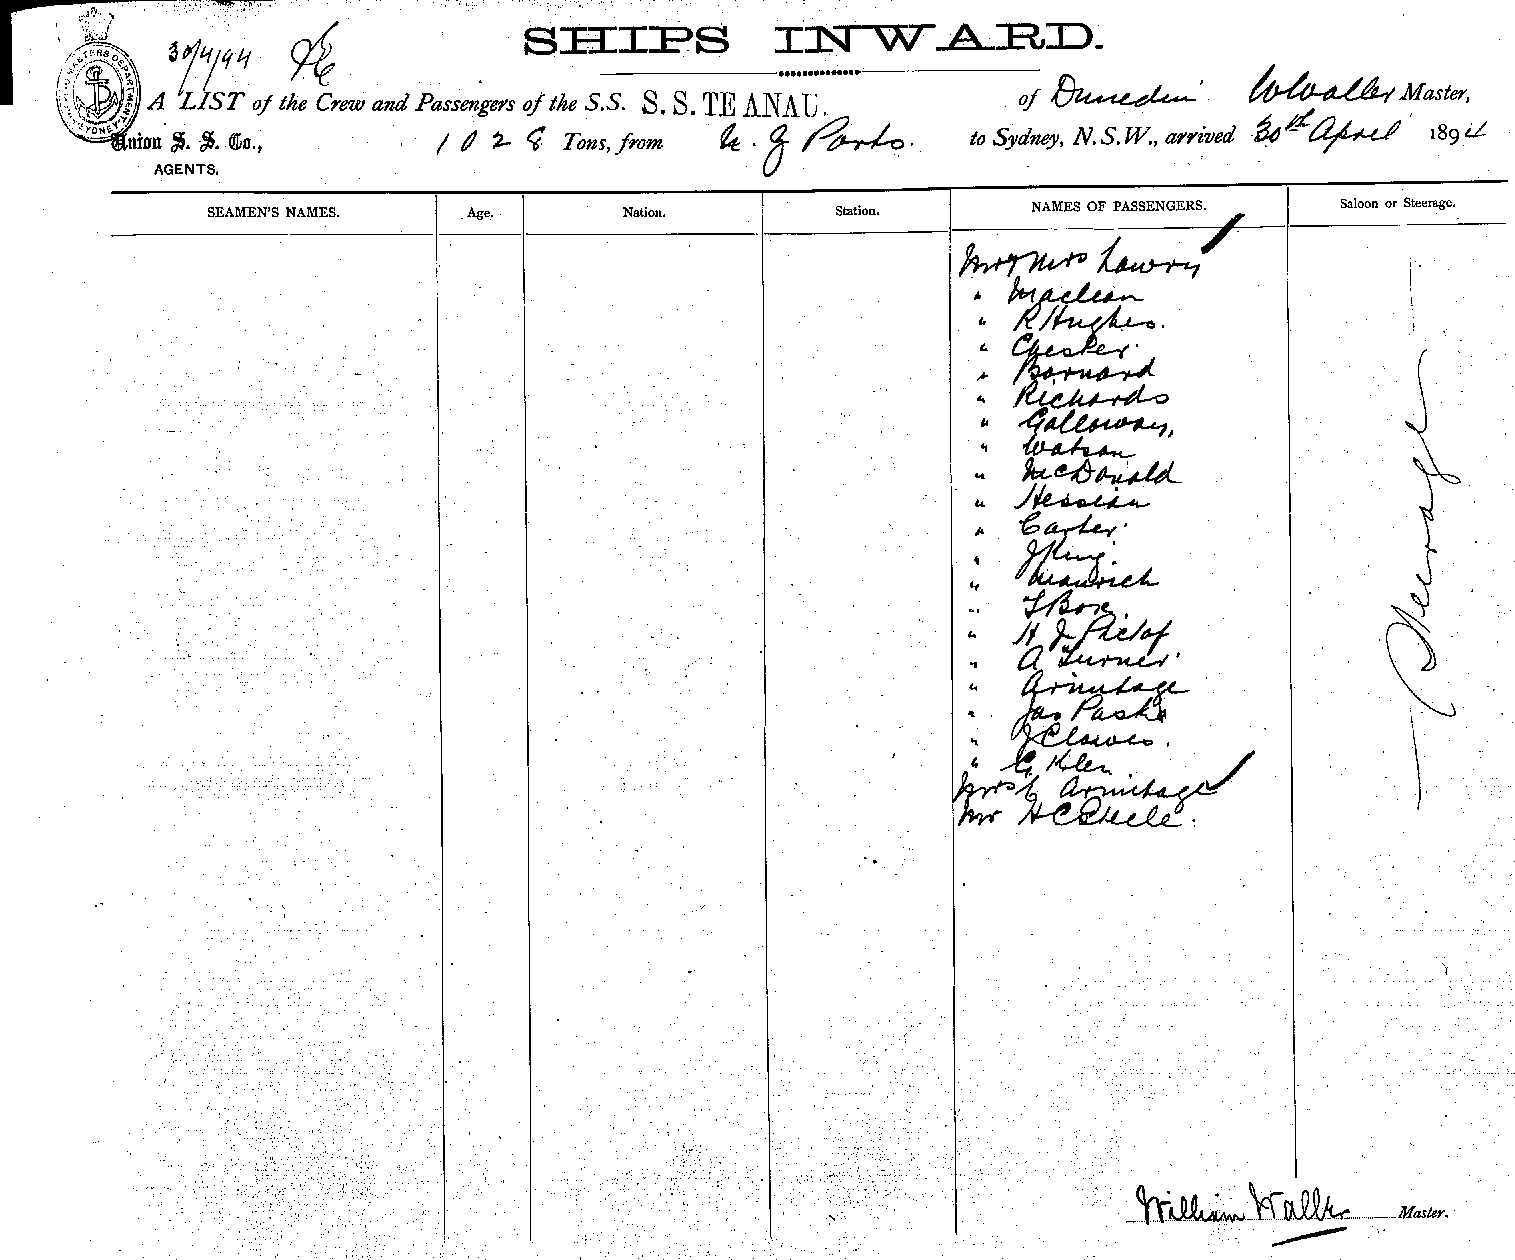 SHIPS INWARD.
30/4/94
A LIST of the Crew and Passengers of the S.S. S.S. TE ANAU. of Dunedin W Waller Master,
Union S. S. Co., 1028 Tons, from N. Z Ports. to Sydney, N.S.W., arrived 30th April 1894
AGENTS.
SEAMEN'S NAMES. Age. Nation. Station. NAMES OF PASSENGERS. Saloon or Steerage.
Mr & Mrs Lawry
" Maclean
" R Hughes.
" Chester
" Barnard
" Richards
" Galloway,
" Watson
" McDonald
" Hession
" Carter
" J King.
"
" T Box.
" H J
" A Turner
" Armitage
" Jas
" J Clowes.
" G
Mrs C Armitage
Mr H C Steele.
Steerage
William Waller Master.